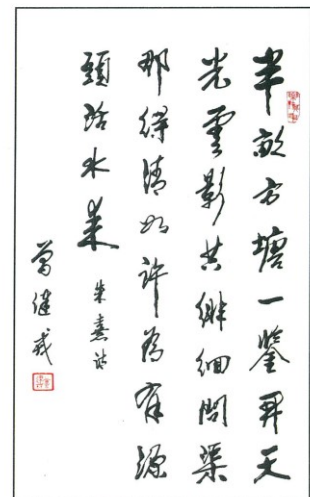 半畝方塘一鑒開天
光雲影共徘徊問渠
那得清如許為有源
頭活水來
朱熹詩